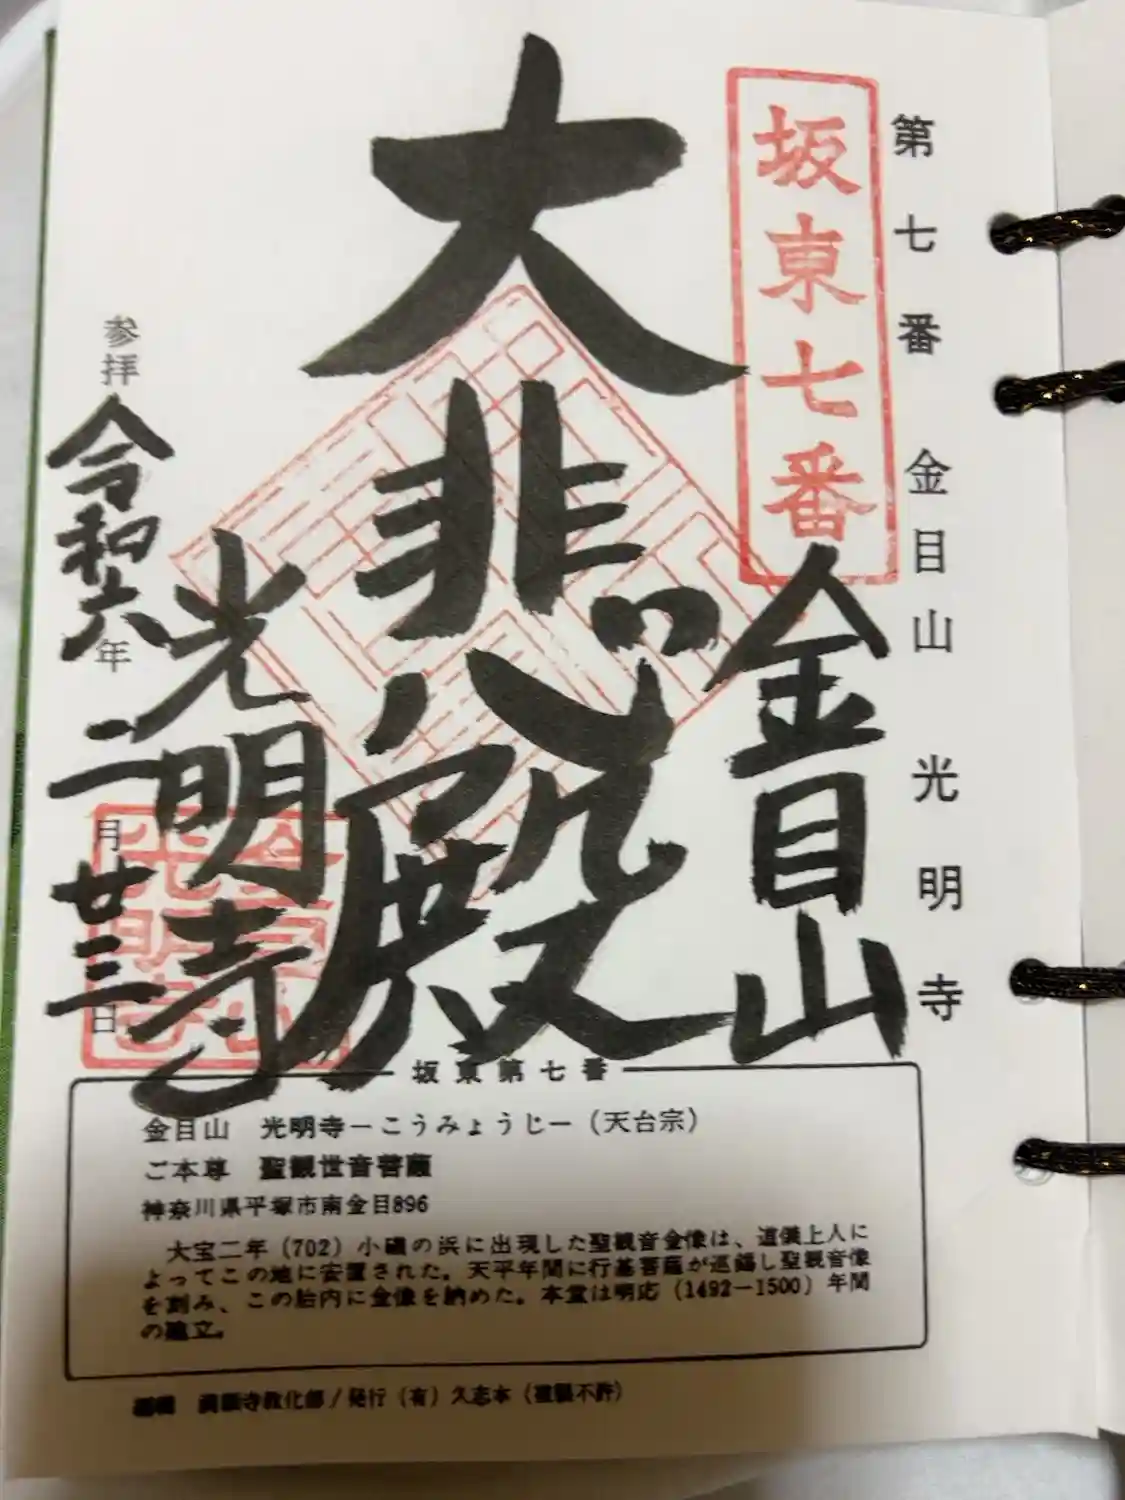 第七番 金目山 光明寺
坂東七番
金目山
大悲殿
光明寺
参拝 令和六年二月廿三日
坂東第七番
金目山 光明寺ーこうみょうじー（天台宗）
ご本尊 聖観世音菩薩
神奈川県平塚市南金目896
大宝二年（702）小磯の浜に出現した聖観音金像は、道儀上人に
よってこの地に安置された。天平年間に行基菩薩が巡錫し聖観音像
を刻み、この胎内に金像を納めた。本堂は明応（1492ー1500）年間
の建立。
満願寺教化部/発行（有）久志本（複製不許）